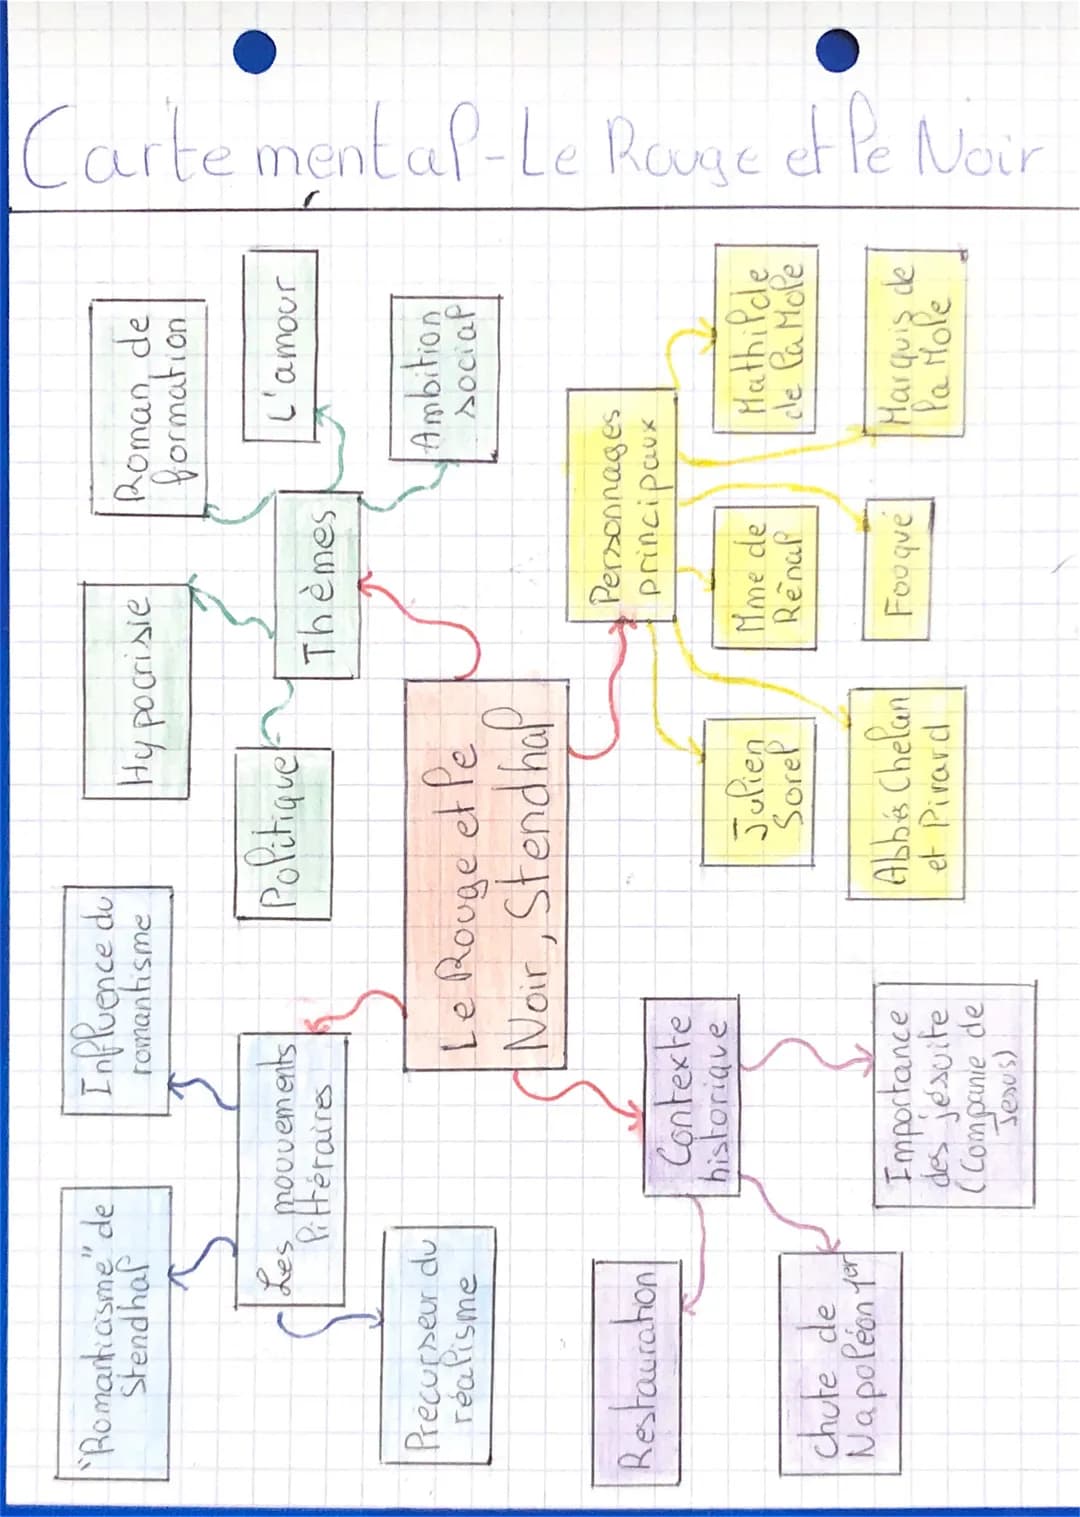 Carte mental - Le Rouge et le Noir
Le Rouge et le
Noir, Stendhal
Les mouvements
littéraires
"Romanticisme" de
Stendhal
Influence du
romantisme
Précurseur du
réalisme
Thèmes
Politique
Hypocrisie
Roman de
formation
L'amour
Ambition
social
Contexte
historique
Restauration
Chute de
Napoléon 1er
Importance
des jésuite
(Companie de
Jesus)
Personnages
principaux
Julien
Sorel
Abbés Chelan
et Pirard
Mme de
Rênal
Fouqué
Mathilde
de la Mole
Marquis de
la Mole